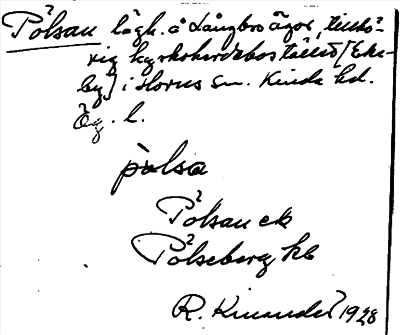 Pølsan lägh. å Långbro ägor, tillhö-
rig kyrkoherdebostället [Eke-
by] i Horns sn. Kinda hd.
Ög. l.
pølsa
Pølsan ek
Pølseberg kb
R. Kinander 1928